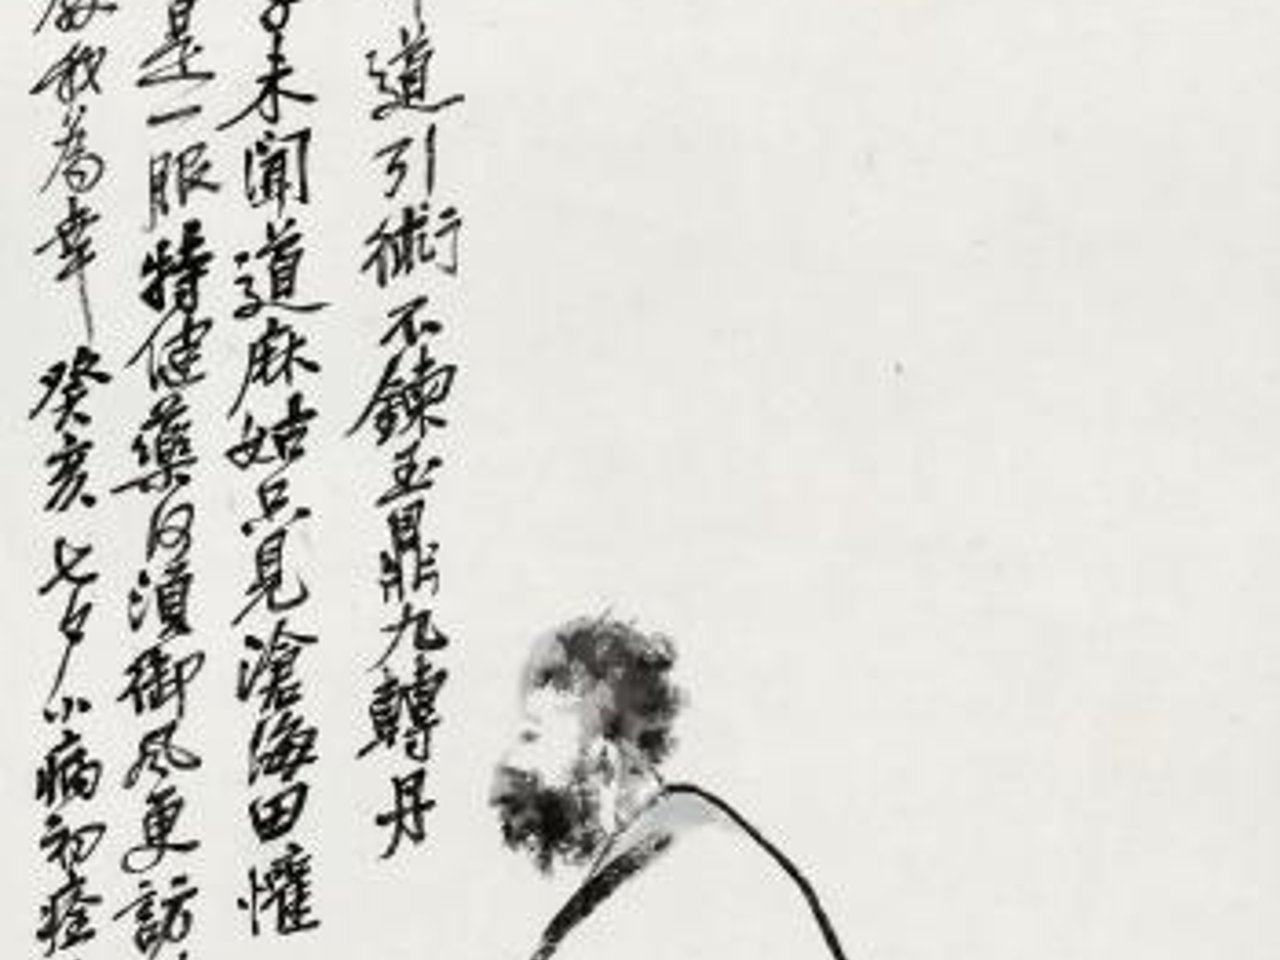 道引術不鍊玉鼎九轉丹
未聞道麻姑只見滄海田懽
是一服特健藥何須御風更訪
我為幸癸亥七夕小病初痊